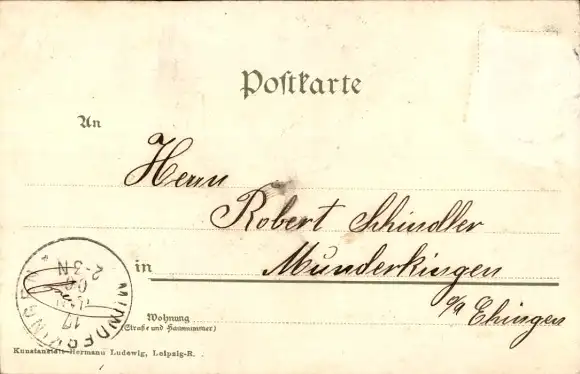 Postkarte
An
Herrn
Robert Schindler
in Munderkingen
o/a Ehingen
MUNDERKINGEN
17
00
2-3N
Wohnung
(Straße und Hausnummer)
Kunstanstalt Hermann Ludewig, Leipzig-R.